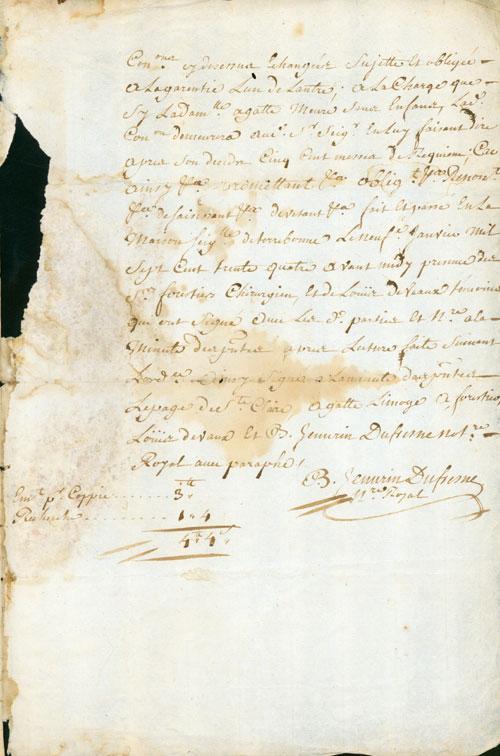 Con^nue cy dessus Echangéés Sujette et obligéé
a La garentie Lun de Lautre. a La Charge que
Sy Ladam^lle agatte meurt sans Enfans, Lad.
Con^on demeurera aud. S^r Seig^r En Luy faisant dire
apres Son decedz Cinq Cent messes de Requiem, Car
ainsy &ca promettant &ca oblig^t &ca Renon^t
&ca fait et passé En La
Maison Seig^lle de terrbonne Le neuf^e Janvier mil
Sept Cent trente quatre avant midy presence des
S^rs fourtier Chirurgien, et de Loüis devaux temoins
qui ont Signé avec Les d. parties et N^re a la
minutte des p^ntes apres Lecture faite Suivant
Lord^ce Ainsy Signé a La minute des p^ntes
Lepage de S^te Claire agatte Limoge fourtier,
Loüis devaux et B. Genurin Dufresne not^re
Royal avec paraphe,
B. Genurin Dufresne
N^re Royal
p^r Coppie ........ 3^tt
Recherche ........ 1 " 4
4 " 4^s